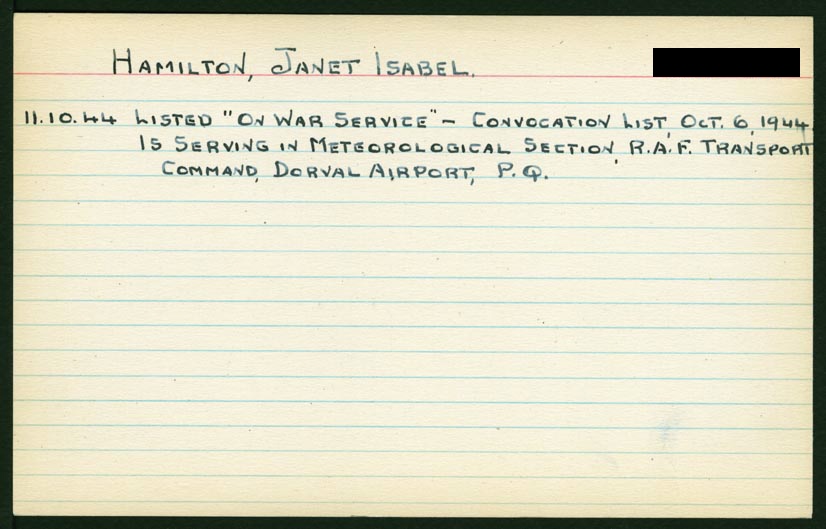 HAMILTON, JANET ISABEL.
11.10.44 LISTED "ON WAR SERVICE" - CONVOCATION LIST, OCT. 6, 1944.
IS SERVING IN METEOROLOGICAL SECTION, R.A.F. TRANSPORT
COMMAND, DORVAL AIRPORT, P.Q.